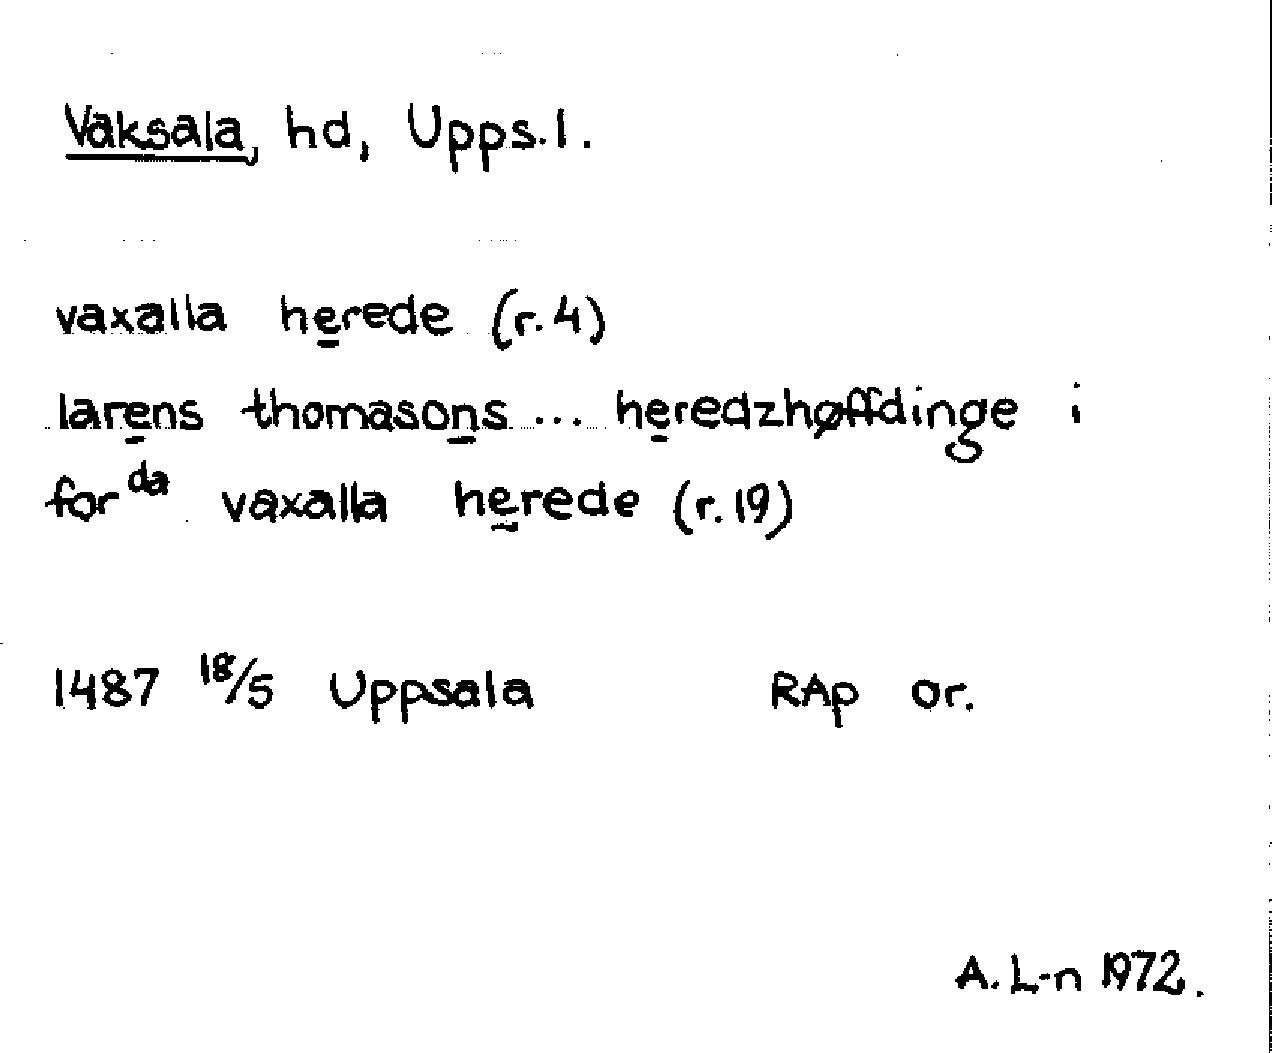 Vaksala, hd, Upps.l.
vaxalla herede (r.4)
larens thomasons ... heredzhøffdinge i
for da vaxalla herede (r.19)
1487 18/5 Uppsala RAp or.
A. L-n 1972.